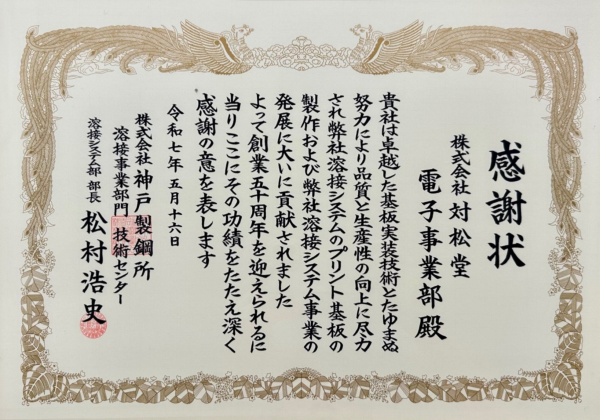 感謝状
株式会社 対松堂
電子事業部殿
貴社は卓越した基板実装技術とたゆまぬ
努力により品質と生産性の向上に尽力
され弊社溶接システムのプリント基板の
製作および弊社溶接システム事業の
発展に大いに貢献されました
よって創業五十周年を迎えられるに
当りここにその功績をたたえ深く
感謝の意を表します
令和七年五月十六日
株式会社 神戸製鋼所
溶接事業部門 技術センター
溶接システム部 部長 松村浩史